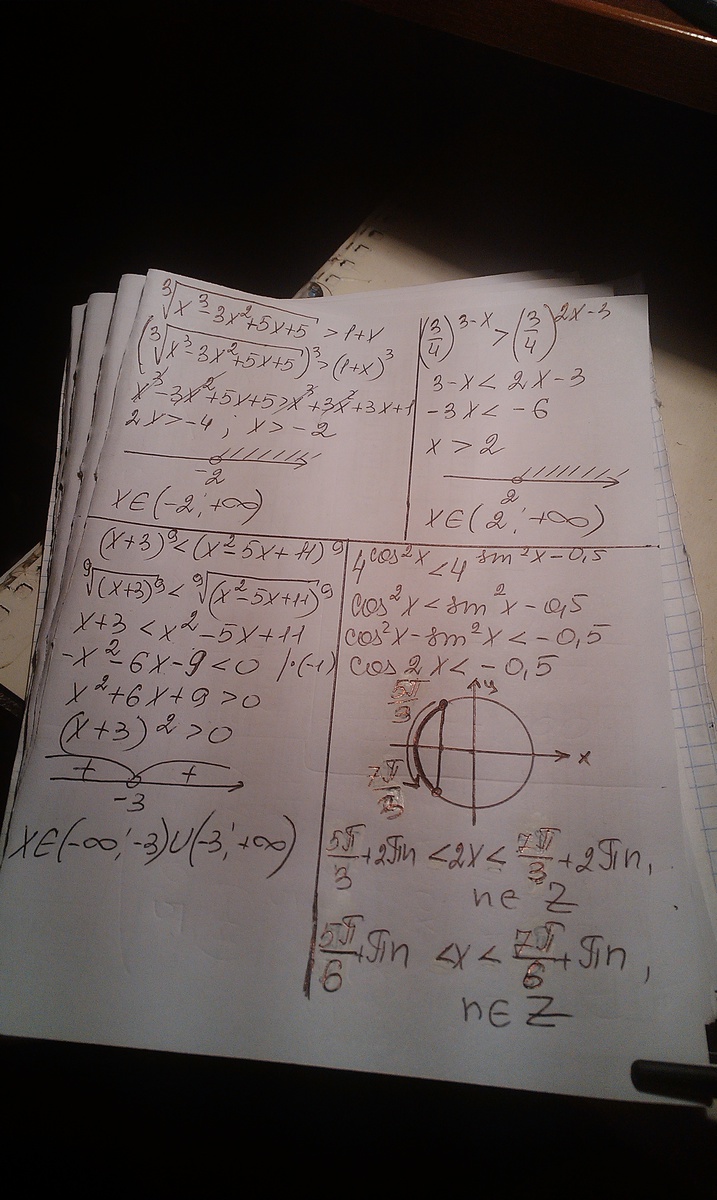 ∛(x³-3x²+5x+5) > 1+x
(∛(x³-3x²+5x+5))³ > (1+x)³
x³-3x²+5x+5 > x³+3x²+3x+1
2x > -4 ; x > -2
-2
x∈(-2;+∞)
(3/4)^(3-x) > (3/4)^(2x-3)
3-x < 2x-3
-3x < -6
x > 2
2
x∈(2;+∞)
(x+3)⁹ < (x²-5x+11)⁹
⁹√(x+3)⁹ < ⁹√(x²-5x+11)⁹
x+3 < x²-5x+11
-x²-6x-9 < 0 /·(-1)
x²+6x+9 > 0
(x+3)² > 0
+ +
-3
x∈(-∞;-3)∪(-3;+∞)
4^(cos²x) < 4^(sin²x-0,5)
cos²x < sin²x-0,5
cos²x-sin²x < -0,5
cos 2x < -0,5
y
5π/3
x
7π/3
5π/3+2πn < 2x < 7π/3+2πn,
n∈Z
5π/6+πn < x < 7π/6+πn,
n∈Z